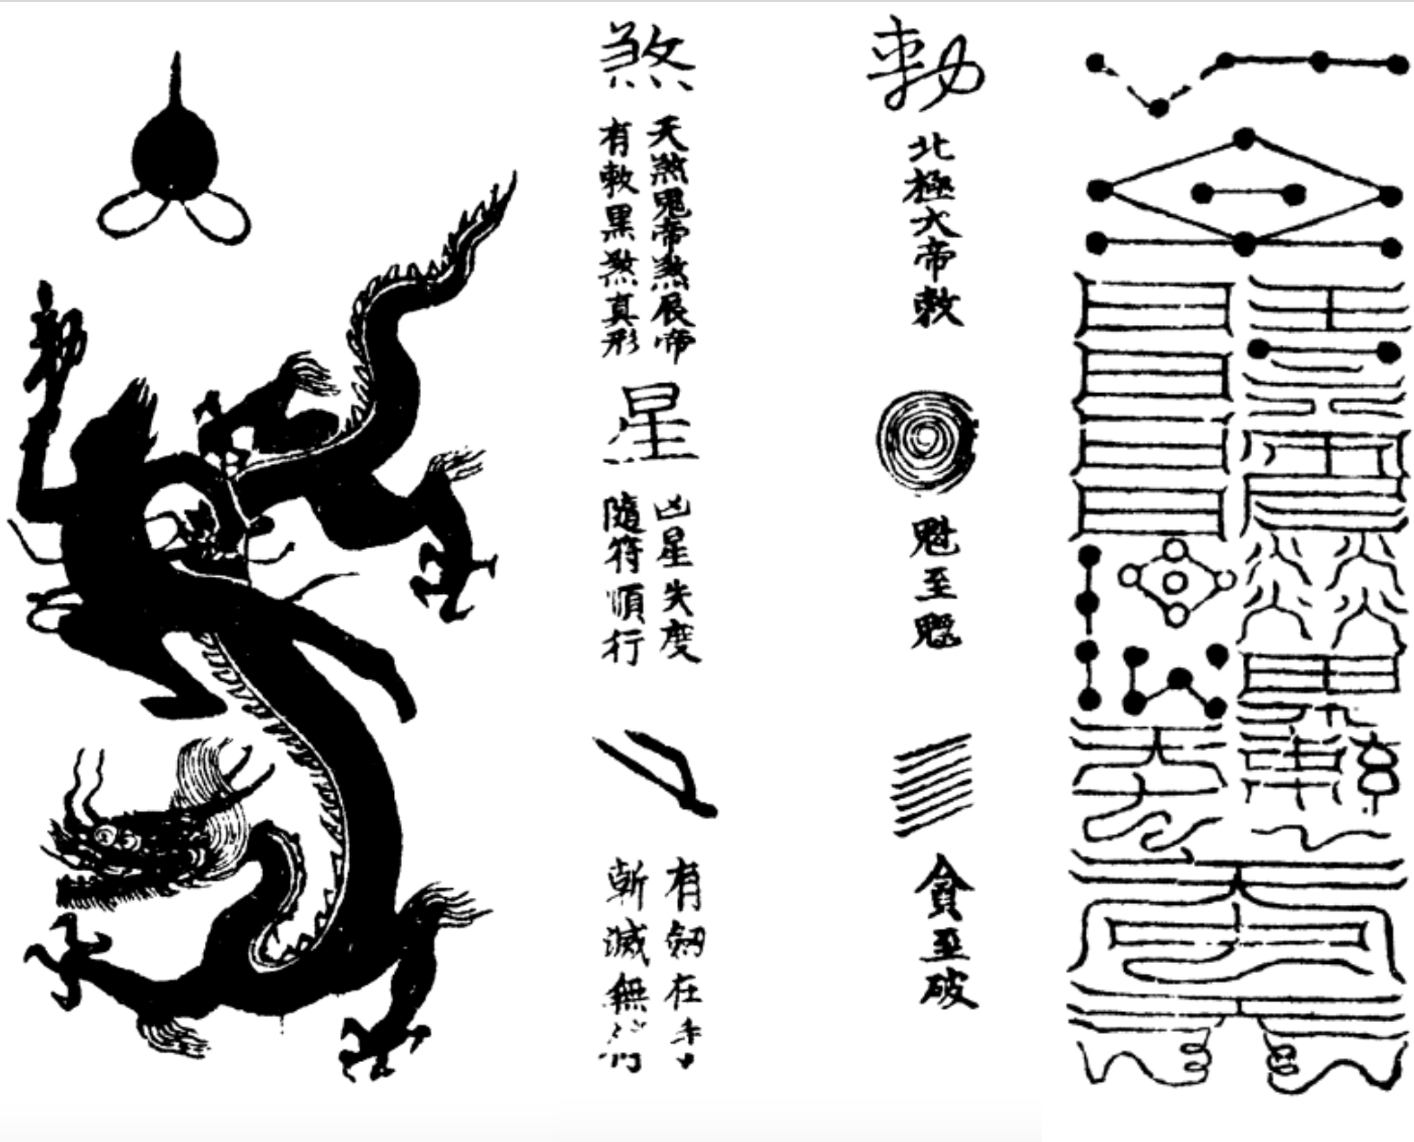 勅
北極大帝敕
魁至
貪至破
煞
天煞鬼帝煞展帝
有敕黑煞真形
星
凶星失度
隨符順行
有劒在手
斬滅無
勅